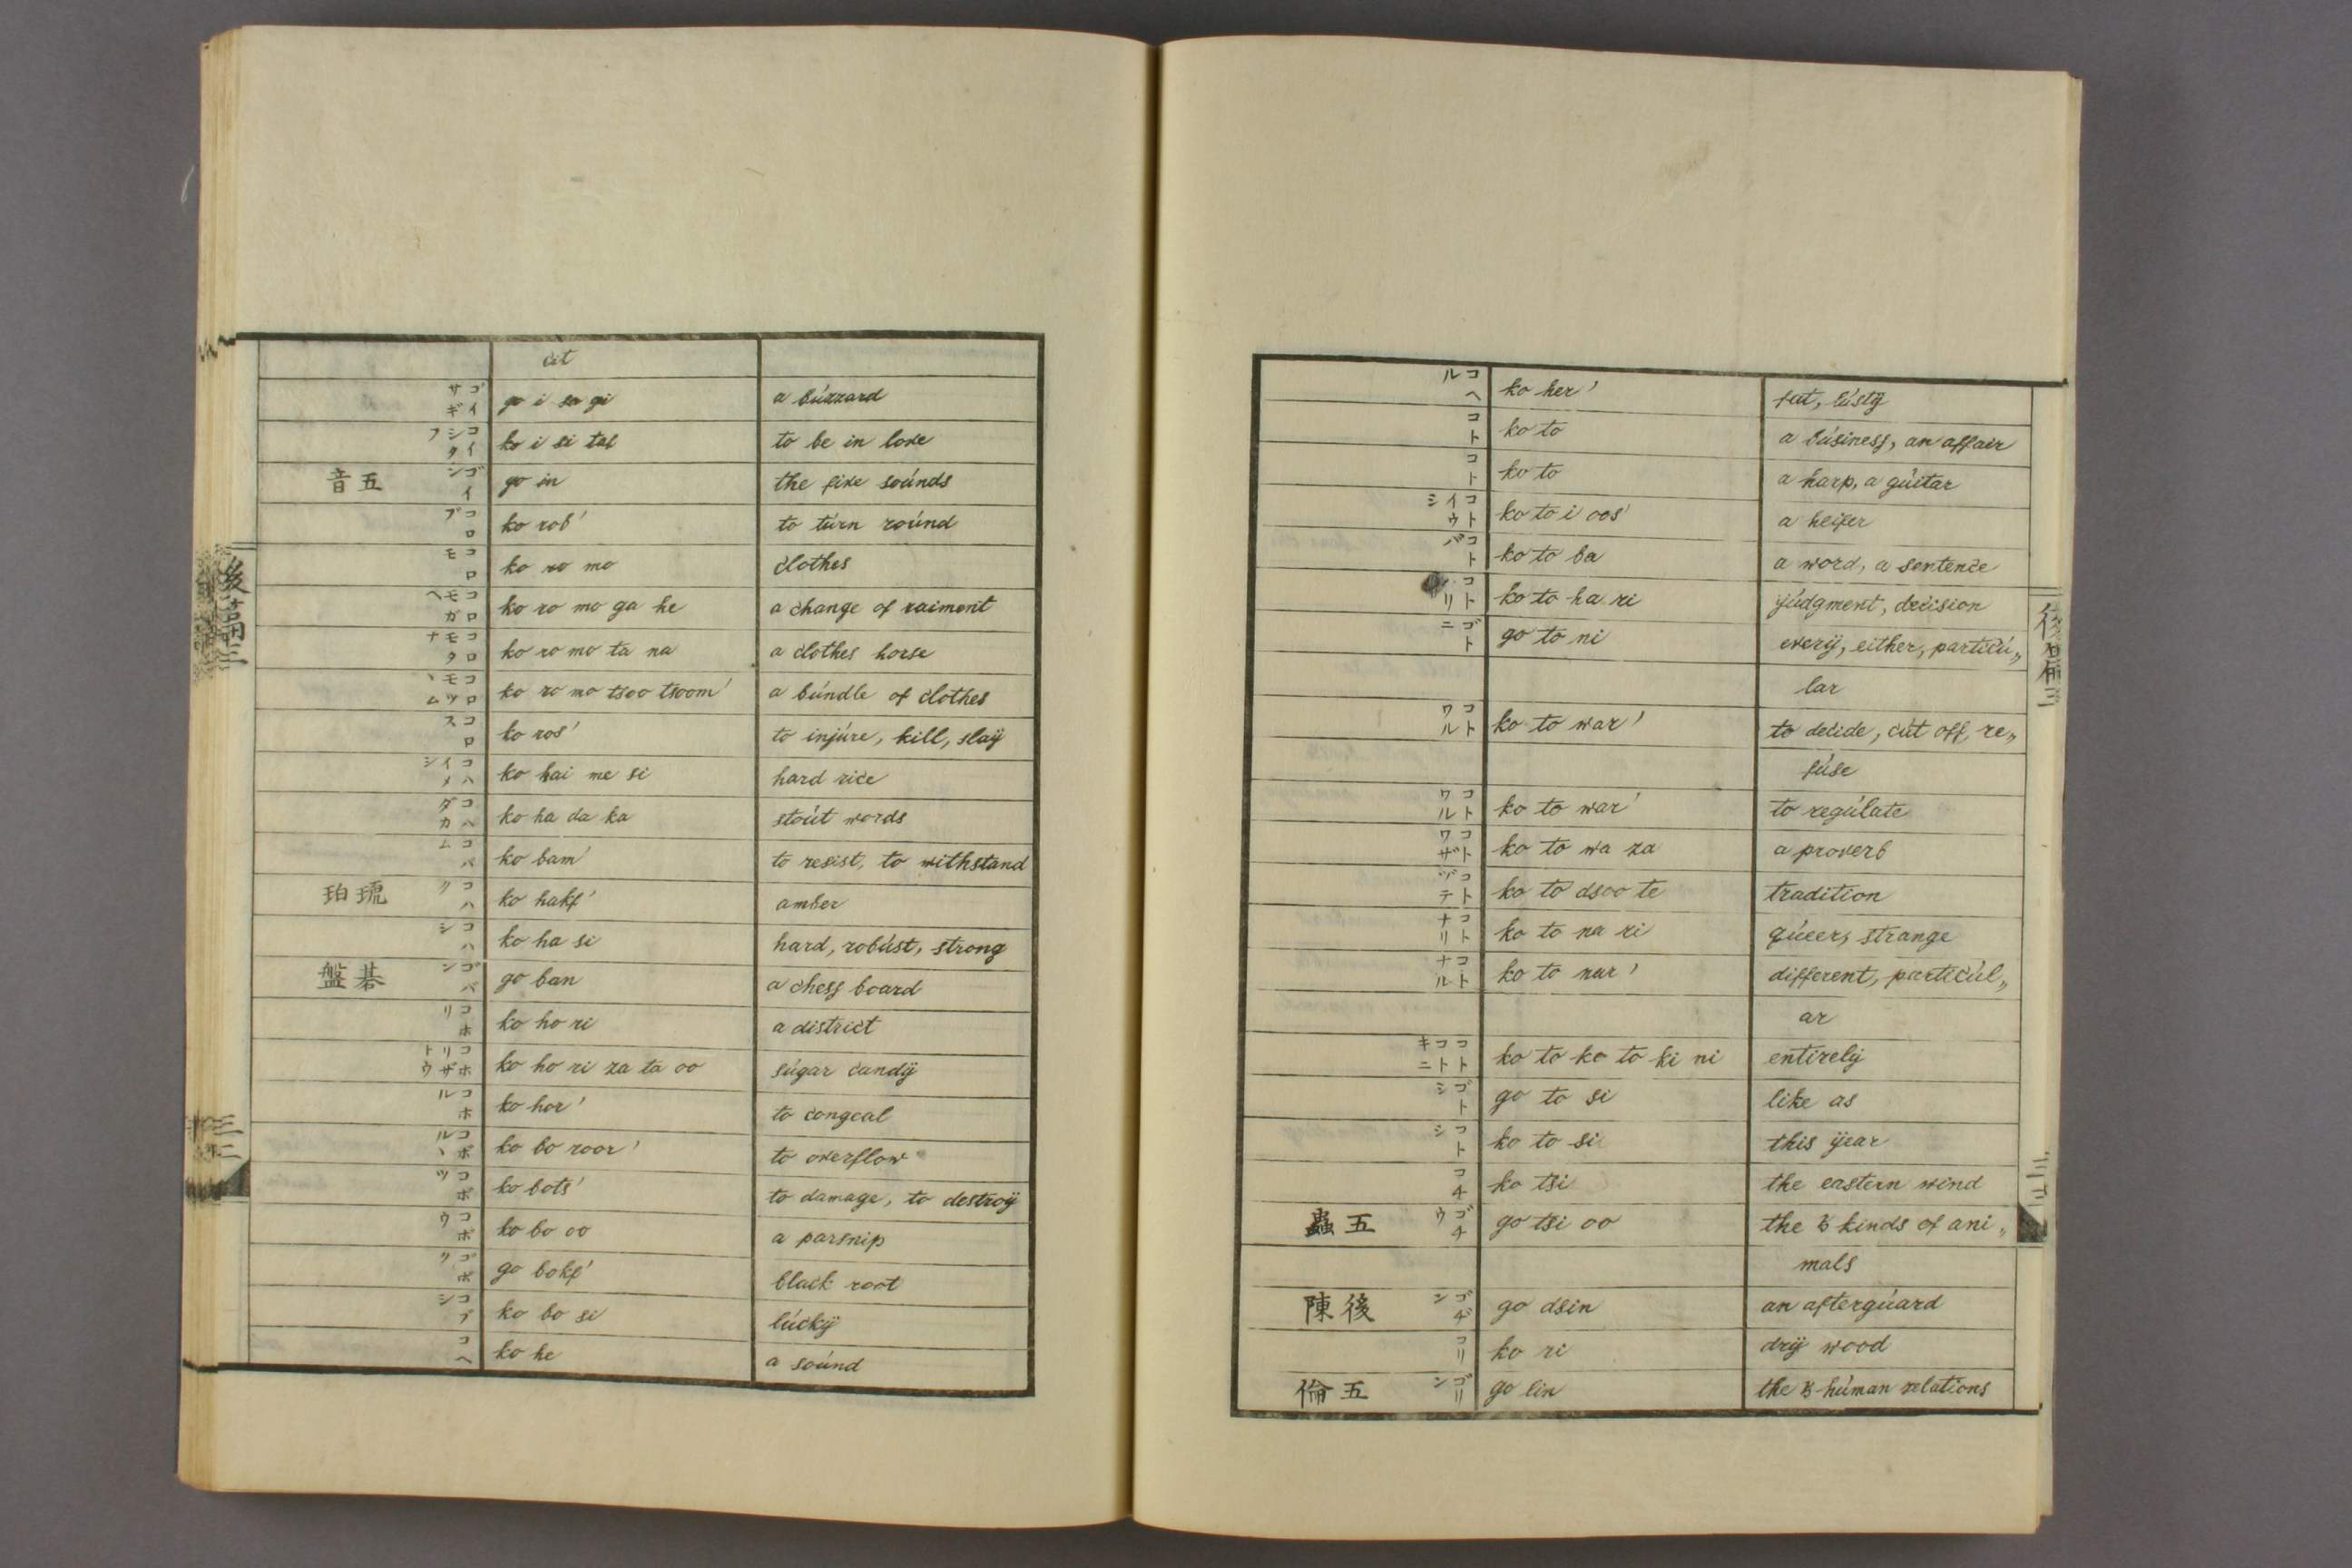 át
ゴイサギ go i sa gi a búzzard
コイシタフ ko i si taf to be in love
五音 ゴイン go in the five soúnds
コロブ ko rob' to túrn roúnd
コロモ ko ro mo clothes
コロモガヘ ko ro mo ga he a change of raiment
コロモタナ ko ro mo ta na a clothes horse
コロモツヽム ko ro mo tsoo tsoom' a búndle of clothes
コロス ko ros' to injúre, kill, slaÿ
コハイメシ ko hai me si hard rice
コハダカ ko ha da ka stoút words
コバム ko bam' to resist, to withstand
琥珀 コハク ko hakf' amber
コハシ ko ha si hard, robúst, strong
碁盤 ゴバン go ban a chess board
コホリ ko ho ri a district
コホリザトウ ko ho ri za ta oo súgar candÿ
コホル ko hor' to congeal
コボヽル ko bo roor' to overflow
コボツ ko bots' to damage, to destroÿ
コボウ ko bo oo a parsnip
ゴボク go bokf' black root
コブシ ko bo si lúckÿ
コヘ ko he a soúnd
後編
コヘル ko her' fat, lústÿ
コト ko to a búsiness, an affair
コト ko to a harp, a gúitar
コトイウシ ko to i oos' a heifer
コトバ ko to ba a word, a sentence
コトハリ ko to ha ri júdgment, decision
ゴトニ go to ni everÿ, either, particú„
lar
コトワル ko to war' to decide, cút off, re„
fúse
コトワル ko to war' to regúlate
コトワザ ko to wa za a proverb
コトヅテ ko to dsoo te tradition
コトナリ ko to na ri qúeer, strange
コトナル ko to nar' different, particúl„
ar
コトコトキニ ko to ko to ki ni entirelÿ
ゴトシ go to si like as
コトシ ko to si this ÿear
コチ ko tsi the eastern wind
五蟲 ゴチウ go tsi oo the 5 kinds of ani„
mals
後陳 ゴヂン go dsin an aftergúard
コリ ko ri drÿ wood
五倫 ゴリン go lin the 5 húman relations